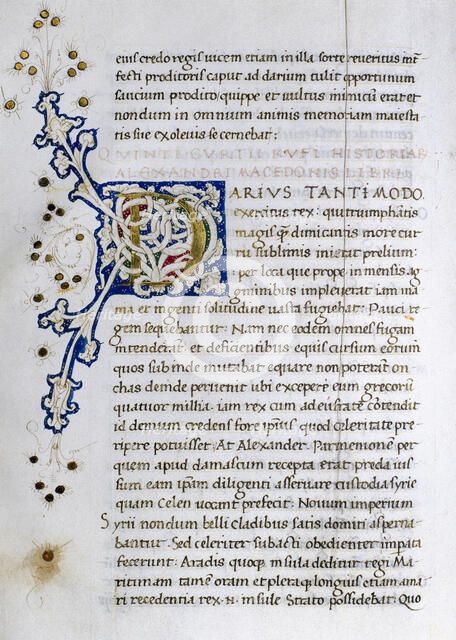 eius credo regis vicem etiam in illa sorte reveritus int̄
fecti proditoris caput ad darium tulit opportunum
saucium prodito: quippe et vultus inimicū erat et
nondum in omnium animis memoriam maiesta
tis sue exolevisse cernebat:
QUINTI CURTII RUFI HISTORIAR
ALEXANDRI MACEDONIS LIBRI
DARIUS TANTI MODO
exercitus rex: qui triumphātis
magis q̄ dimicantis more cur
ru sublimis inierat prelium:
per loca que prope inmensis ag
minibus impleverat iam ina
nia et ingenti solitudine vasta fugiebat: Pauci re
gem sequebantur: Nam nec eodem omnes fugam
intenderāt et deficientibus equis cursum eorum
quos subinde mutabat equare non poterāt: on
chas deinde pervenit ubi exceperē eum grecorū
quatuor millia: iam rex cum ad eufratē cōtendit
id demum credens fore ip̄ius quod celeritate pre
ripere potuisset: At Alexander Parmenionē per
quem apud damascum recepta erat preda ius
sum eam ip̄am diligenti asservare custodia syrie
quam Celen vocant prefecit: Novum imperium
Syrii nondum belli cladibus satis domiti asperna
bantur: Sed celeriter subacti obedienter impata
fecerunt: Aradis quoq, insula deditur regi Ma
ritimam tamē oram et pleraq, longius etiam a ma
ri recedentia rex .N. insule Strato possidebat: Quo